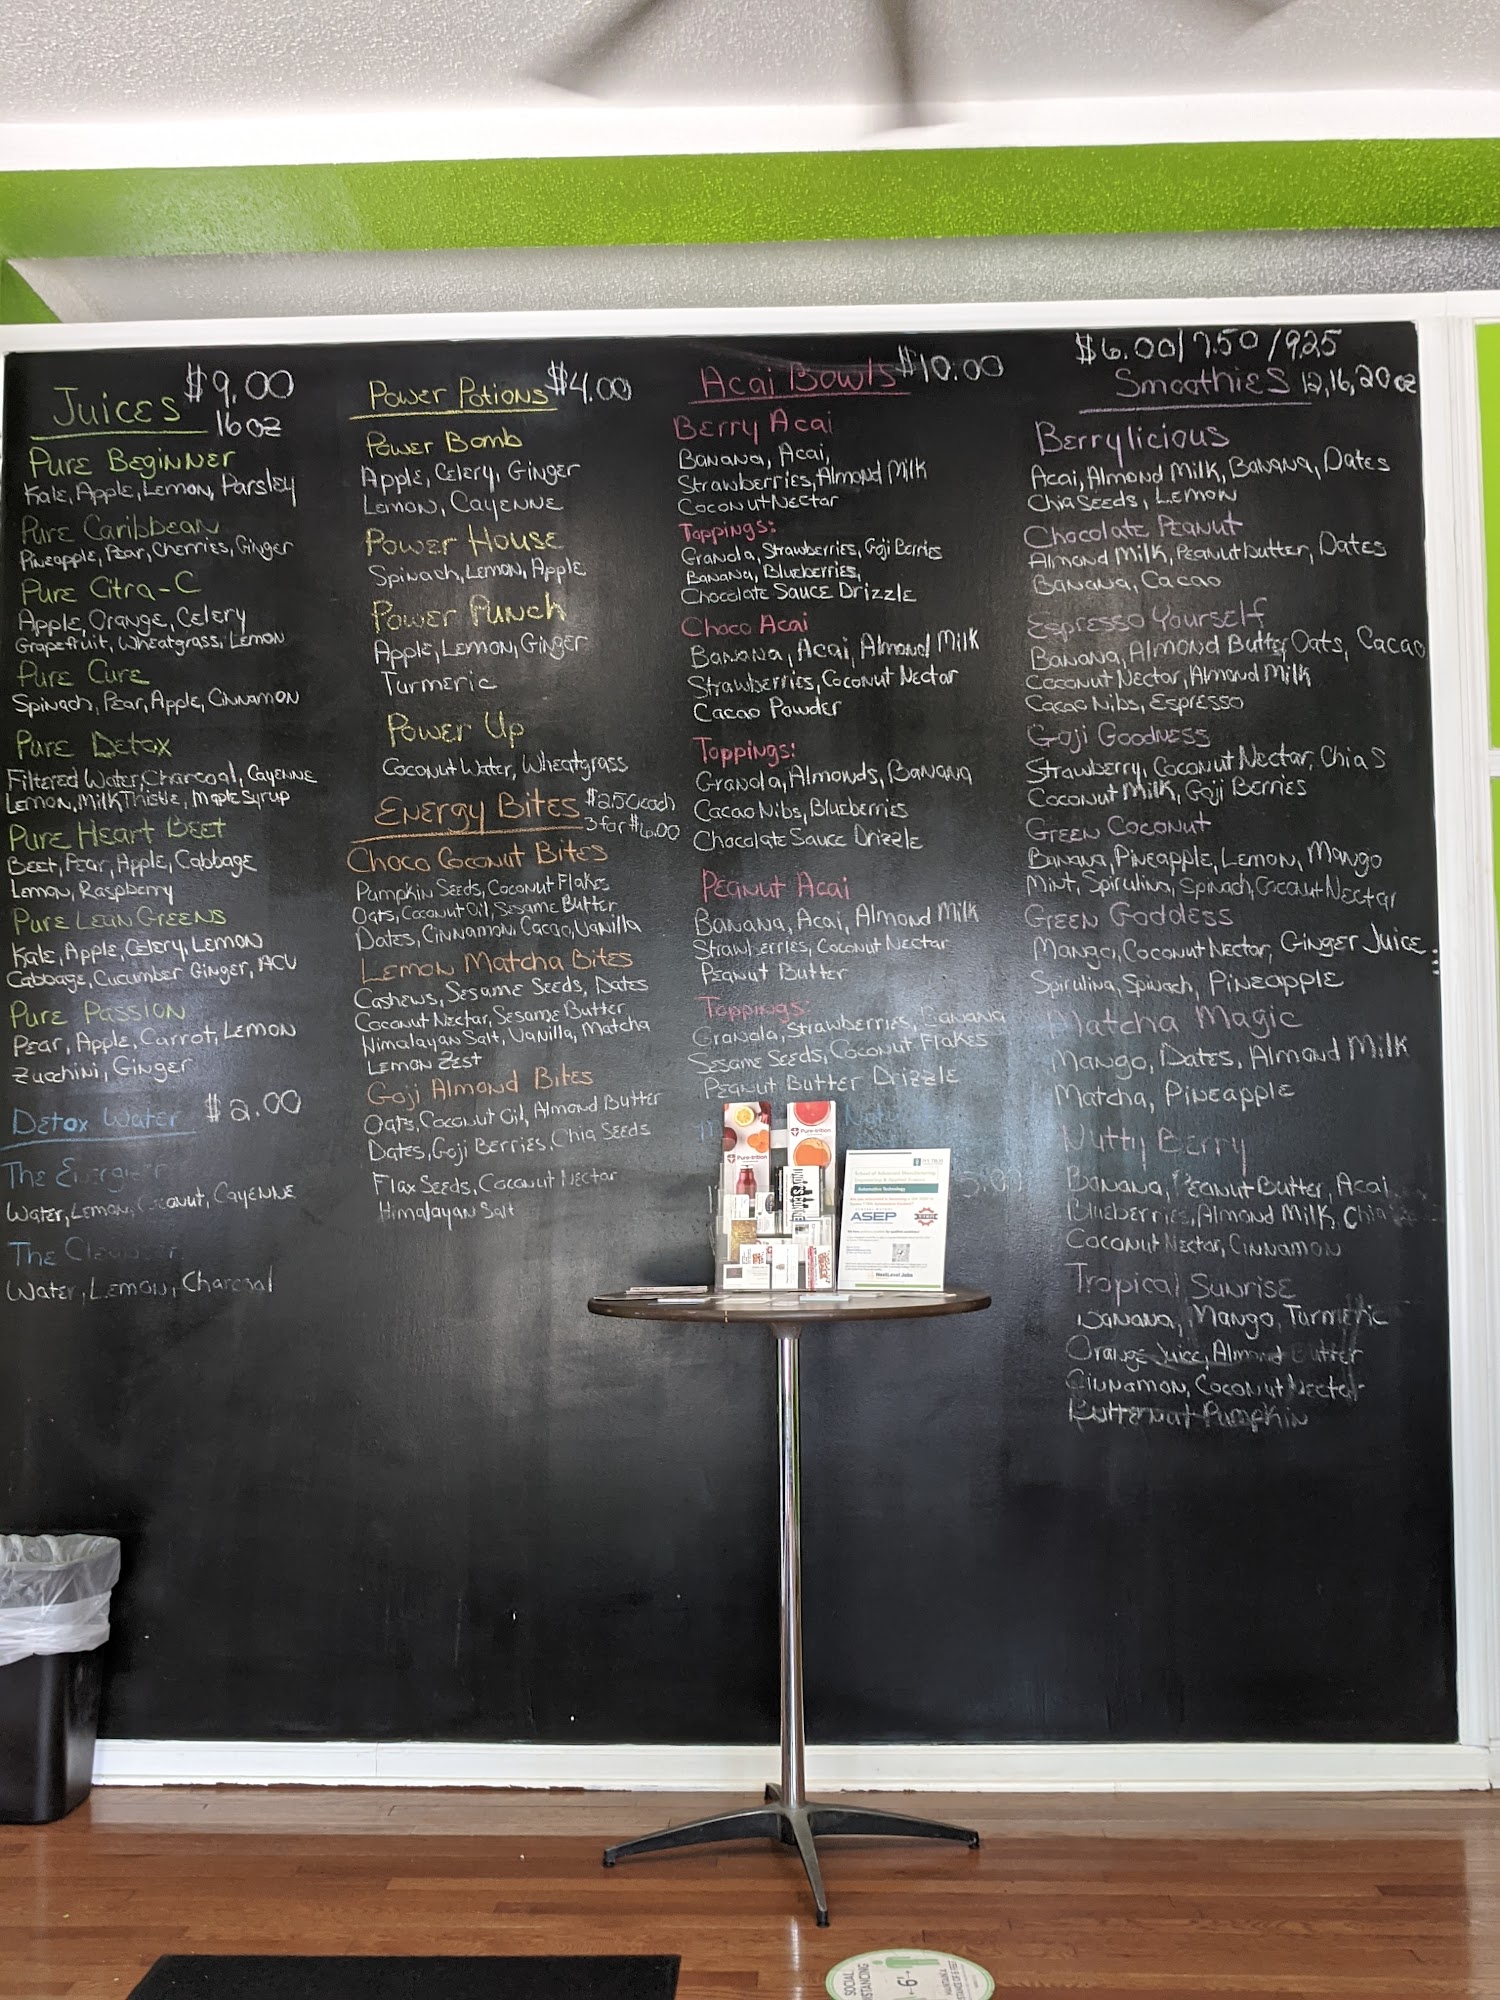 Juices $9.00
16 oz
Pure Beginner
Kale, Apple, Lemon, Parsley
Pure Caribbean
Pineapple, Pear, Cherries, Ginger
Pure Citra-C
Apple, Orange, Celery
Grapefruit, Wheatgrass, Lemon
Pure Cure
Spinach, Pear, Apple, Cinnamon
Pure Detox
Filtered Water, Charcoal, Cayenne
Lemon, Milk Thistle, Maple Syrup
Pure Heart Beet
Beet, Pear, Apple, Cabbage
Lemon, Raspberry
Pure Lean Greens
Kale, Apple, Celery, Lemon
Cabbage, Cucumber Ginger, ACV
Pure Passion
Pear, Apple, Carrot, Lemon
Zucchini, Ginger
Detox Water $2.00
The Energizer
Water, Lemon, Coconut, Cayenne
The Cleanser
Water, Lemon, Charcoal
Power Potions $4.00
Power Bomb
Apple, Celery, Ginger
Lemon, Cayenne
Power House
Spinach, Lemon, Apple
Power Punch
Apple, Lemon, Ginger
Turmeric
Power Up
Coconut Water, Wheatgrass
Energy Bites $2.50 each
3 for $6.00
Choco Coconut Bites
Pumpkin Seeds, Coconut Flakes
Oats, Coconut Oil, Sesame Butter
Dates, Cinnamon, Cacao, Vanilla
Lemon Matcha Bites
Cashews, Sesame Seeds, Dates
Coconut Nectar, Sesame Butter
Himalayan Salt, Vanilla, Matcha
Lemon Zest
Goji Almond Bites
Oats, Coconut Oil, Almond Butter
Dates, Goji Berries, Chia Seeds
Flax Seeds, Coconut Nectar
Himalayan Salt
Acai Bowls $10.00
Berry Acai
Banana, Acai,
Strawberries, Almond Milk
Coconut Nectar
Toppings:
Granola, Strawberries, Goji Berries
Banana, Blueberries,
Chocolate Sauce Drizzle
Choco Acai
Banana, Acai, Almond Milk
Strawberries, Coconut Nectar
Cacao Powder
Toppings:
Granola, Almonds, Banana
Cacao Nibs, Blueberries
Chocolate Sauce Drizzle
Peanut Acai
Banana, Acai, Almond Milk
Strawberries, Coconut Nectar
Peanut Butter
Toppings:
Granola, Strawberries, Banana
Sesame Seeds, Coconut Flakes
Peanut Butter Drizzle
$6.00/7.50/925
Smoothies 12,16,20 oz
Berrylicious
Acai, Almond Milk, Banana, Dates
Chia Seeds, Lemon
Chocolate Peanut
Almond Milk, Peanut butter, Dates
Banana, Cacao
Espresso Yourself
Banana, Almond Butter Oats, Cacao
Coconut Nectar, Almond Milk
Cacao Nibs, Espresso
Goji Goodness
Strawberry, Coconut Nectar, Chia S
Coconut Milk, Goji Berries
Green Coconut
Banana, Pineapple, Lemon, Mango
Mint, Spirulina, Spinach, Coconut Nectar
Green Goddess
Mango, Coconut Nectar, Ginger Juice
Spirulina, Spinach, Pineapple
Matcha Magic
Mango, Dates, Almond Milk
Matcha, Pineapple
Nutty Berry
Banana, Peanut Butter, Acai
Blueberries, Almond Milk, Chia
Coconut Nectar, Cinnamon
Tropical Sunrise
Banana, Mango, Turmeric
Orange Juice, Almond Butter
Cinnamon, Coconut Nectar
Butternut Pumpkin
Pure-trition
Pure-trition
ASEP
NextLevel Jobs
SOCIAL
6'